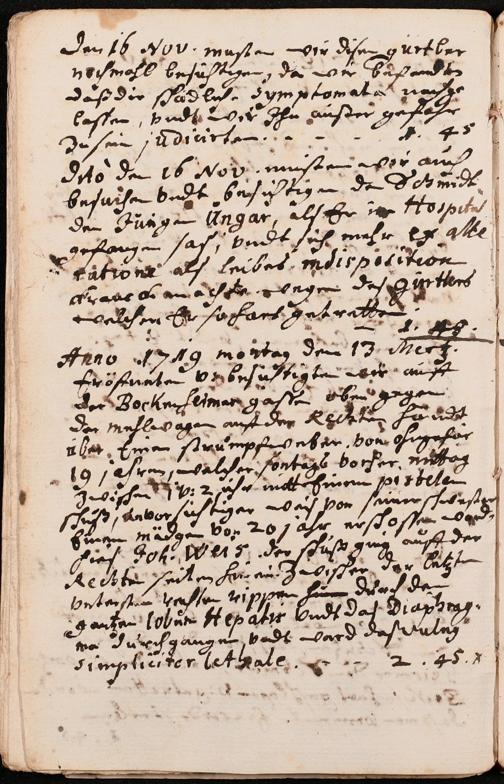 Den 16 Nov. musten wir disen gürtler
nochmahl besichtigen, da wir befanden
daß die schädliche Symptomata nachge
lassen, undt wir Ihn außer gefahr
zu sein judicirten. - - - 1. 45
Dito den 16 Nov. musten wir auch
besuchen undt besichtigen den Schmidt
den Jungen Ungar, als Er im Hospital
gefangen sas, undt sich mehr ex alte
ratione als leibes indisposition
kranck machte wegen des gürtlers
welchen Er so hart getretten.
- 1. 45.
Anno 1719 montag den 13 Mertz.
Eröfneten u. besichtigten wir auff
der Bockenheimer gassen oben gegen
der mehlwagen auff der Rechten handt
über Einen strumpfweber von ohngefär
19 jahren, welcher sontags vorher mittag
zwischen 1 u: 2 uhr mitt Einem pistolen
schuß, unvorsichtiger weis von seiner schwester
Einem mädgen von 20 jahr erschossen word
hies Joh. Weis. der schuß ging auff der
Rechten seiten hinein zwischen der letzten
untersten rechten rippen durch den
gantzen lobum Hepatis undt das Diaphrag-
ma durchgangen, undt ward das vulnus
simpliciter lethale. - - - 2. 45. x